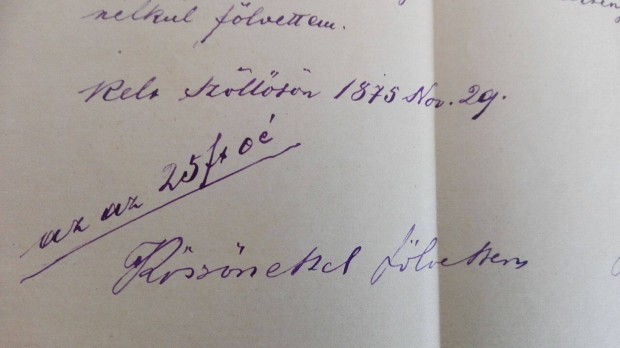 nelkul fölvettem.
Kelt Szöllösön 1875 Nov. 29.
az az 25 ft o é
Köszönettel fölvettem